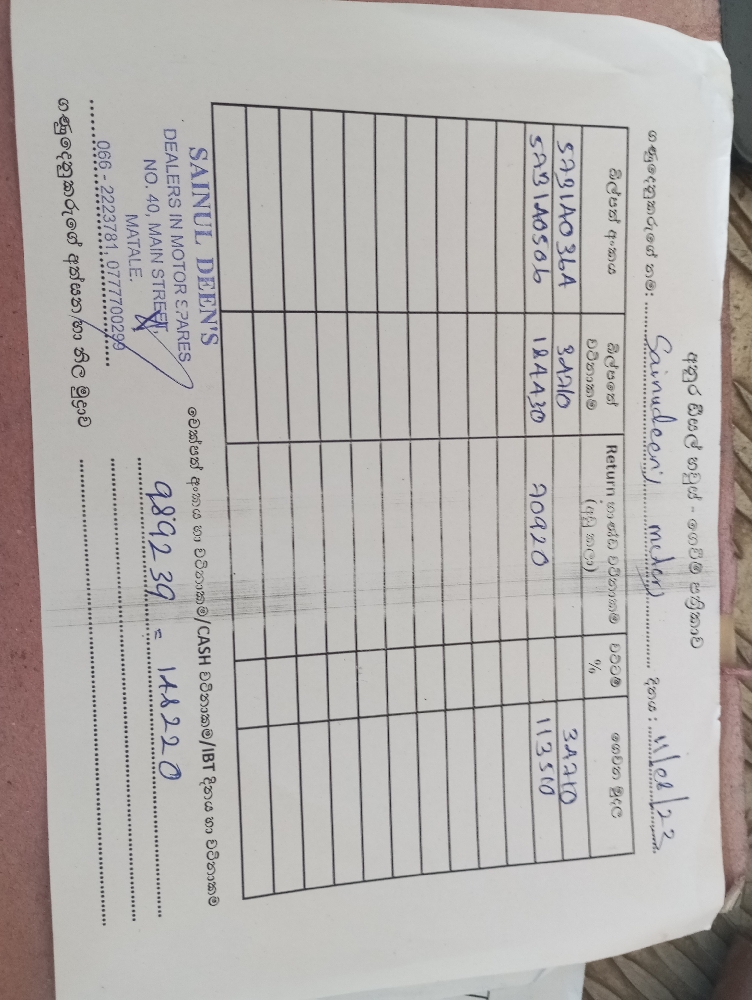 අනුර සීයල් හවුස් - ගෙවීම් පත්‍රිකාව
ගණුදෙනුකරුගේ නම: Sainudeen's motors දිනය: 11/08/23
බිල්පත් අංකය බිල්පතේ වටිනාකම Return භාණ්ඩ වටිනාකම (අඩු කලා) වට්ටම් % ගෙවන මුදල
5AB1A036A 34710 34710
5AB1A0506 184430 70920 113510
SAINUL DEEN'S
DEALERS IN MOTOR SPARES
NO. 40, MAIN STREET,
MATALE.
066 - 2223781, 0777700299
ගණුදෙනුකරුගේ අත්සන හා නිල මුද්‍රාව
චෙක්පත් අංකය හා වටිනාකම/CASH වටිනාකම/IBT දිනය හා වටිනාකම
989239 = 148220